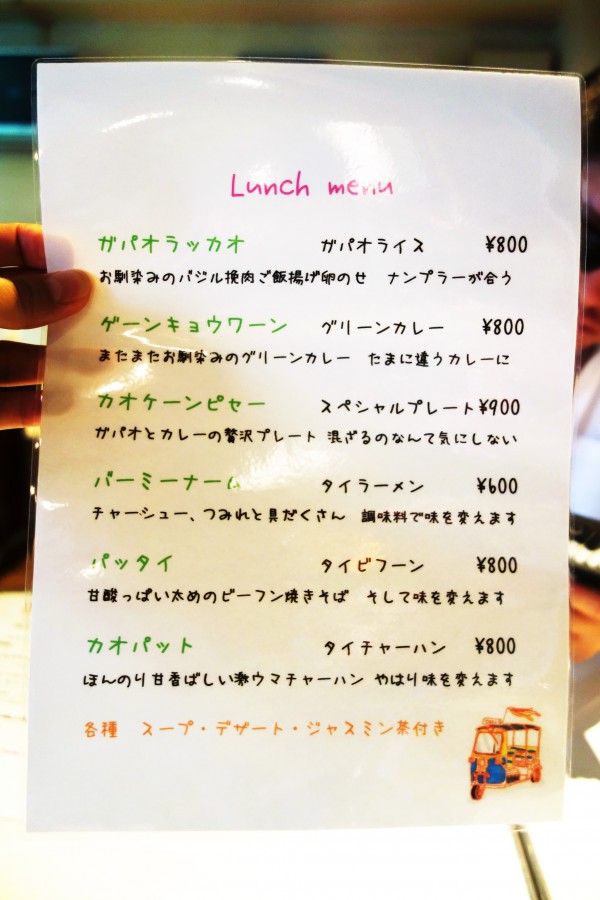 Lunch menu
ガパオラッカオ ガパオライス ¥800
お馴染みのバジル挽肉ご飯揚げ卵のせ ナンプラーが合う
ゲーンキョウワーン グリーンカレー ¥800
またまたお馴染みのグリーンカレー たまに違うカレーに
カオケーンピセー スペシャルプレート ¥900
ガパオとカレーの贅沢プレート 混ざるのなんて気にしない
バーミーナーム タイラーメン ¥600
チャーシュー、つみれと具だくさん 調味料で味を変えます
パッタイ タイビフーン ¥800
甘酸っぱい太めのビーフン焼きそば そして味を変えます
カオパット タイチャーハン ¥800
ほんのり甘香ばしい激ウマチャーハン やはり味を変えます
各種 スープ・デザート・ジャスミン茶付き